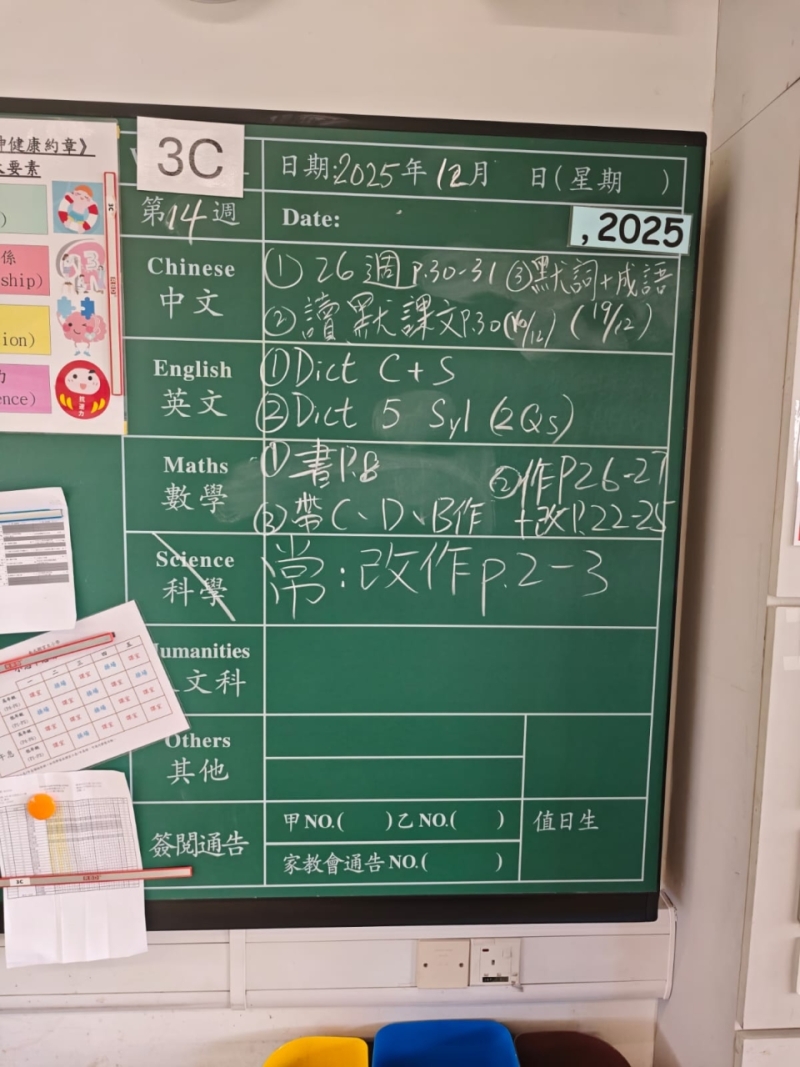 3C
日期:2025年12月 日(星期 )
第14週
Date:
,2025
Chinese
中文
① 26週 P.30-31 ③默詞+成語
②讀默課文P.30(10/12) (19/12)
English
英文
①Dict C+S
②Dict 5 Syl (2Qs)
Maths
數學
①書P.8 ②作P.26-27
③帶C、D、B作 +改P.22-25
Science
科學
常:改作p.2-3
umanities
文科
Others
其他
簽閱通告
甲NO.( )乙NO.( )
值日生
家教會通告NO.( )
健康約章》
要素
係
ship)
ion)
力
ence)
一 二 三 四 五